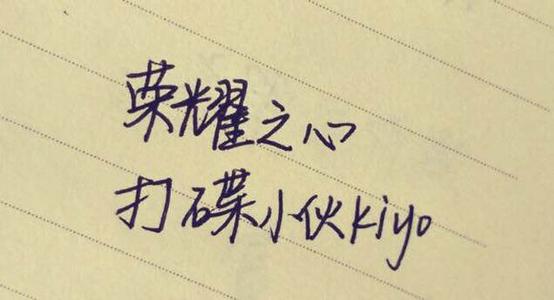 荣耀之心
打碟小伙kiyo